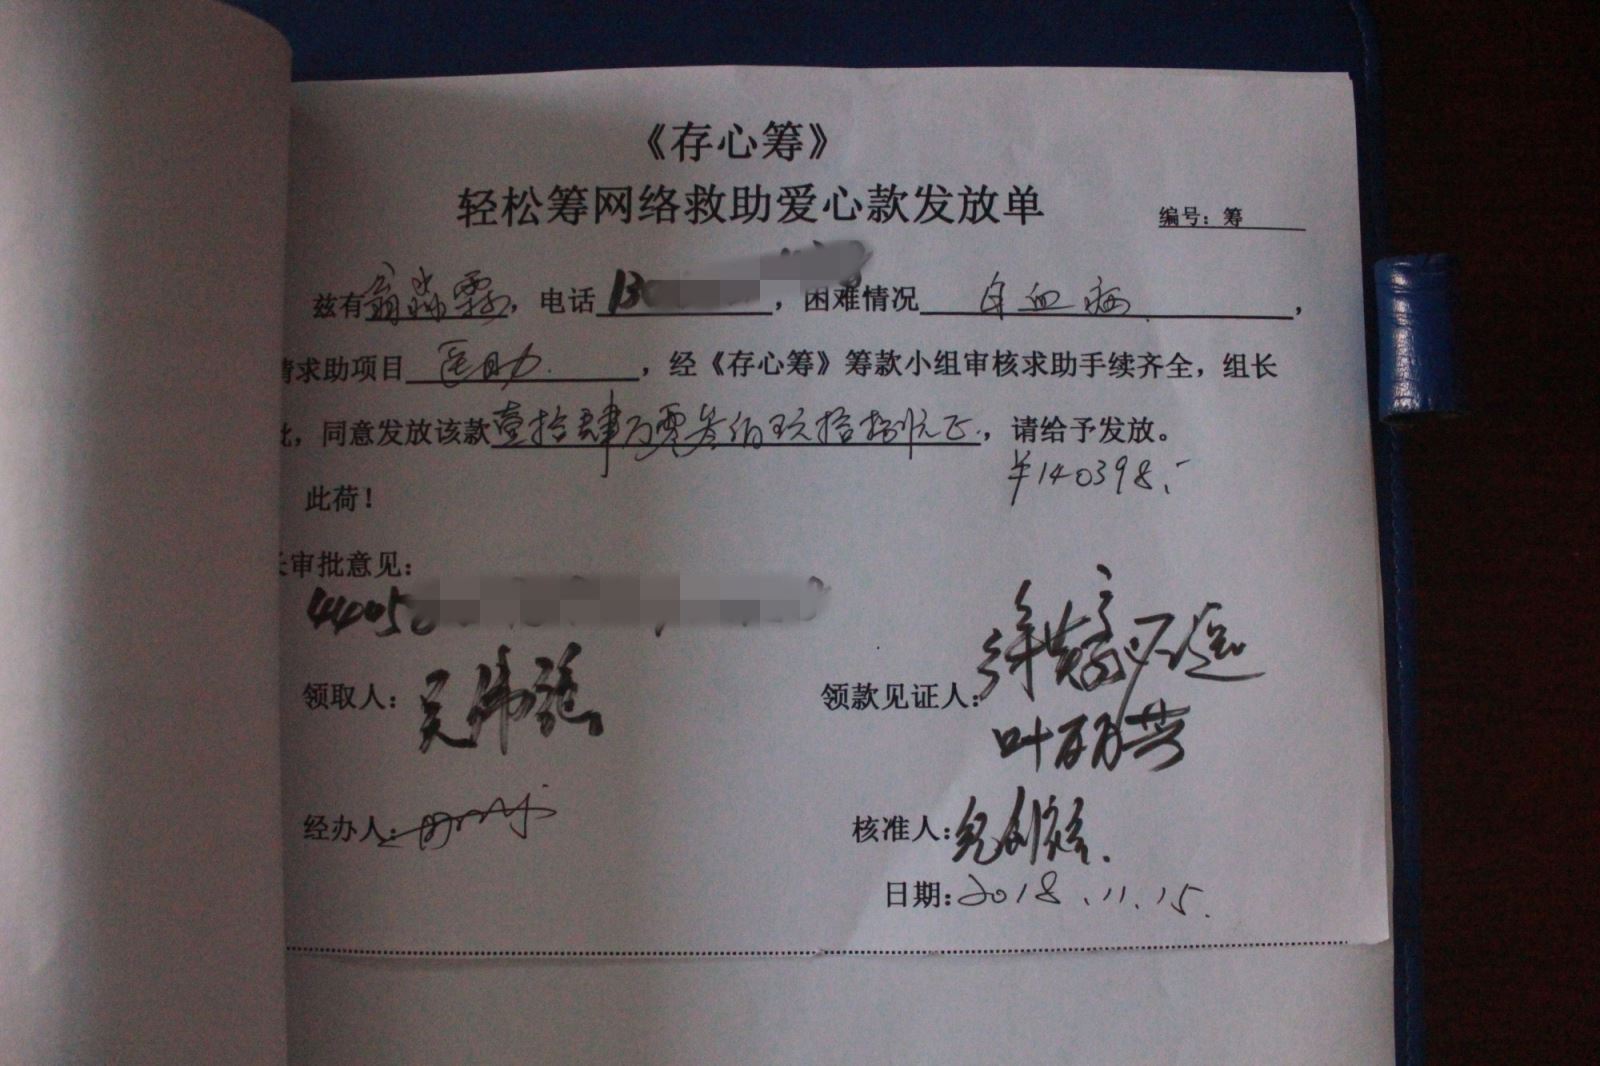 《存心筹》
轻松筹网络救助爱心款发放单
编号：筹
兹有翁淼霖，电话13，困难情况 白血病，
请求助项目 医助，经《存心筹》筹款小组审核求助手续齐全，组长
批，同意发放该款壹拾肆万零叁佰玖拾捌元正，请给予发放。
￥140398.-
此荷！
长审批意见：
44058
领取人：吴伟
领款见证人：
叶丽芳
经办人：
核准人：
日期：2018.11.15.